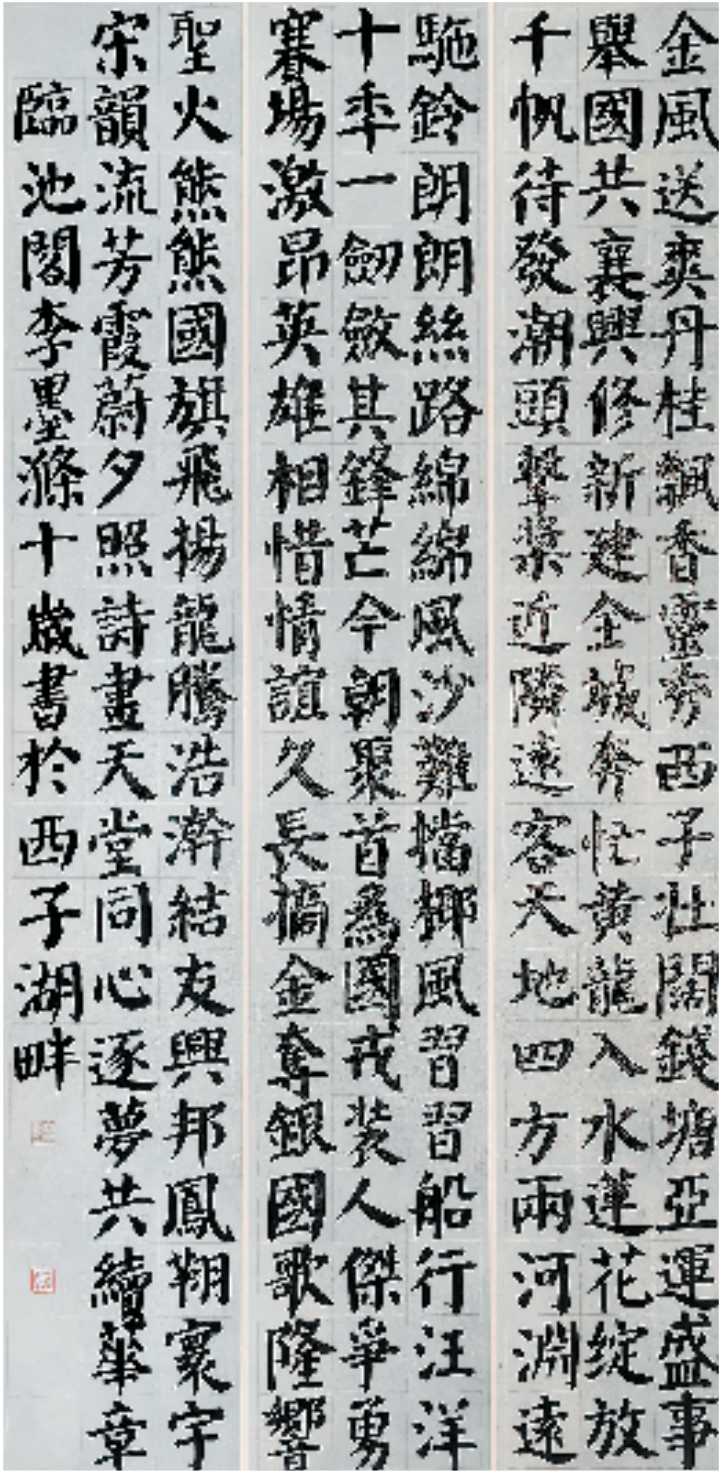 金風送爽丹桂飄香靈秀西子壯闊錢塘亞運盛事
舉國共襄興修新建全城奔忙黃龍入水蓮花綻放
千帆待發潮頭擊槳近隣遠客天地四方兩河淵遠
駞鈴朗朗絲路綿綿風沙難擋椰風習習船行汪洋
十年一劒斂其鋒芒今朝聚首爲國戎裝人傑爭勇
賽場激昂英雄相惜情誼久長摘金奪銀國歌隆響
聖火熊熊國旗飛揚龍騰浩瀚結友興邦鳳翔寰宇
宋韻流芳霞蔚夕照詩畫天堂同心逐夢共續華章
臨池閣李墨滌十歲書於西子湖畔